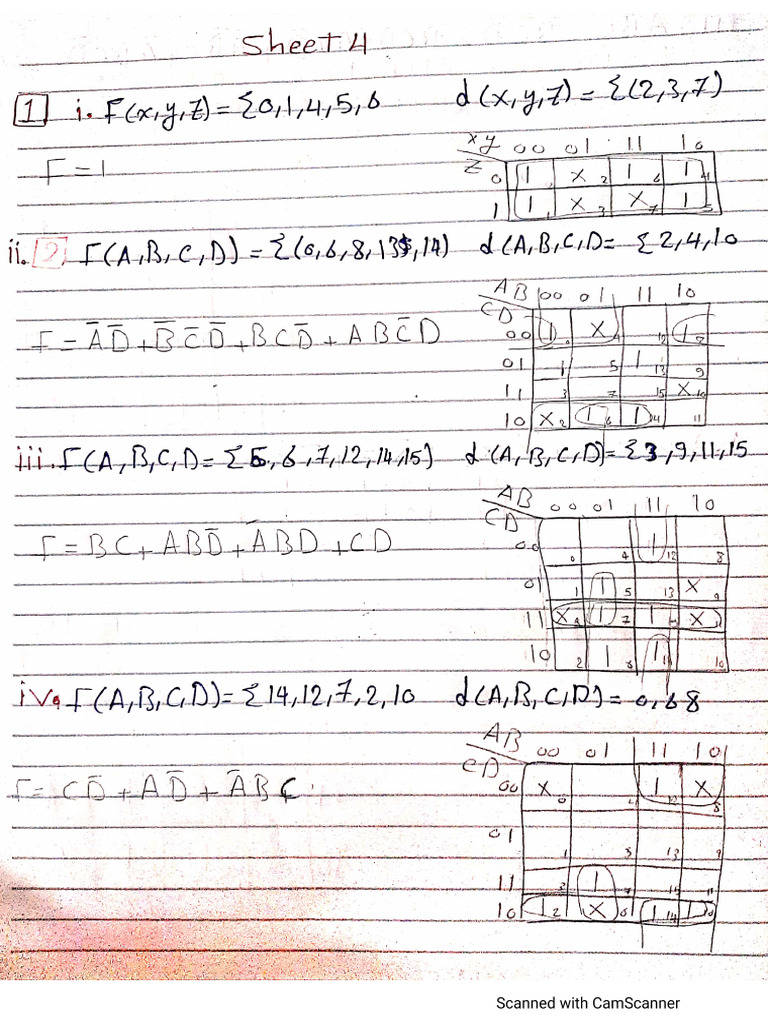 Sheet 4
1 i. F(x,y,z) = Σ0,1,4,5,6 d(x,y,z) = Σ(2,3,7)
xy 00 01 11 10
F = 1
z 0 1 X 2 1 6 1 4
1 1 1 X 3 X 7 1 5
ii. 2 F(A,B,C,D) = Σ(0,6,8,13,14) d(A,B,C,D = Σ2,4,10
AB 00 01 11 10
CD
F = A̅D̅ + B̅C̅D̅ + BCD̅ + ABC̅D
00 1 0 X 4 12 1 8
01 1 5 1 13 9
11 3 7 15 X 10
10 X 2 1 6 1 14 11
iii. F(A,B,C,D = Σ5,6,7,12,14,15) d(A,B,C,D) = Σ3,9,11,15
AB 00 01 11 10
CD
F = BC + ABD̅ + A̅BD + CD
00 0 4 1 12 8
01 1 1 5 13 X 9
11 X 1 7 1 X
10 2 1 6 1 10
iv. F(A,B,C,D) = Σ14,12,7,2,10 d(A,B,C,D) = 0,6 8
AB 00 01 11 10
CD
F = CD̅ + AD̅ + A̅BC
00 X 0 4 1 12 X 8
01 1 5 13 9
11 3 1 7 15 11
10 1 2 X 6 1 14 1 10
Scanned with CamScanner